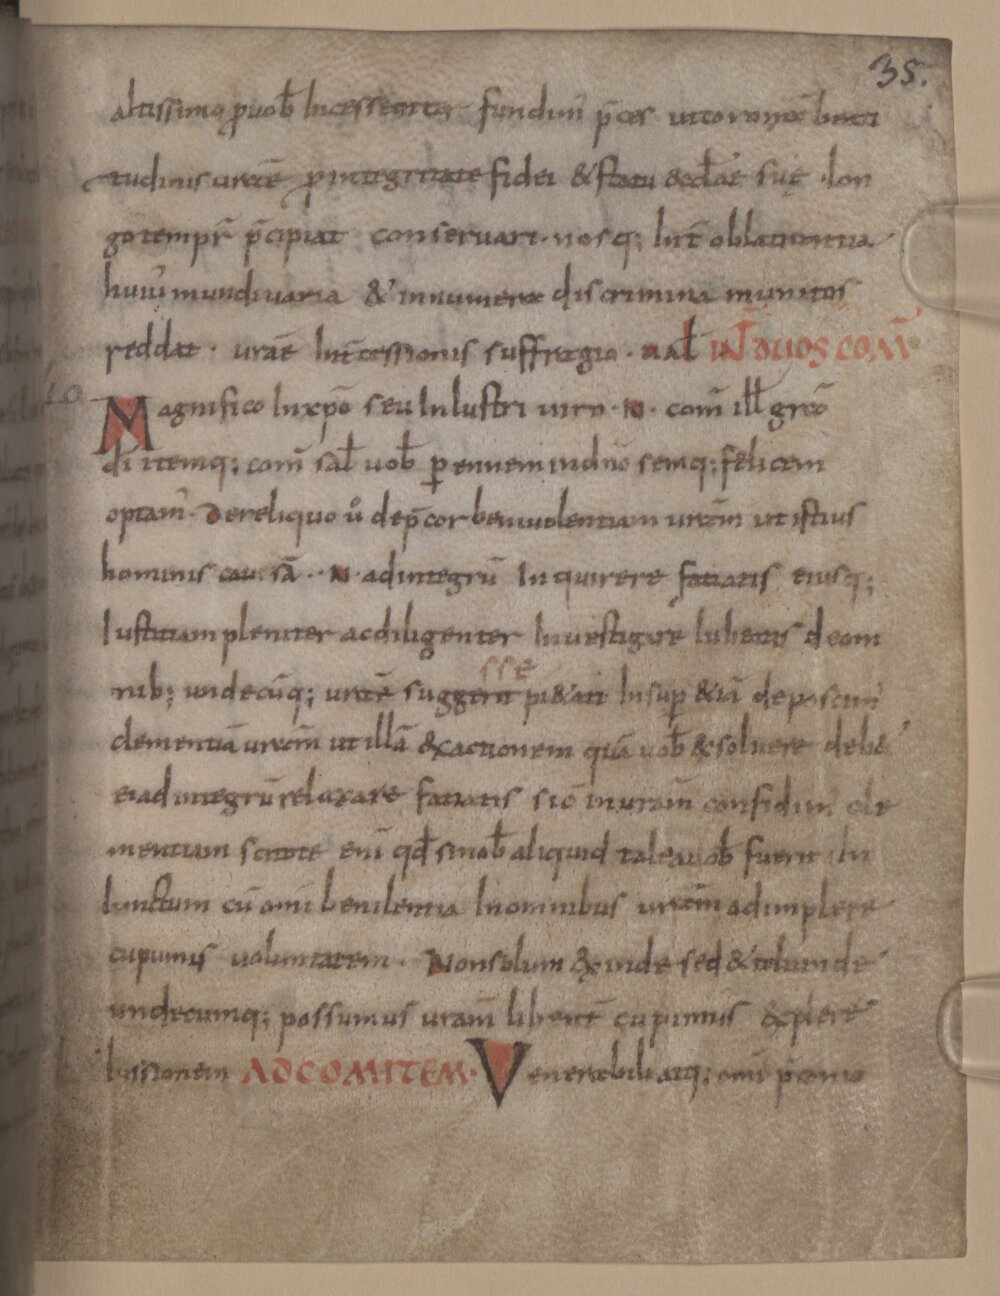 35.
altissimo p̱ uob̄ Incessanter fundim̄ p̄ces ut coronā beati
tudinis uestrę p̱ integritate fidei & statu ęccl̄ae suę lon
go tempr̄ p̄cipiat conseruari. nosq; Int̄ oblatrantia
huiu' mundi uaria & innumera discrimina munitos
reddat. urāe Int̄cessionis suffragia. ual̄ INT̄ DUOS COM̄
Magnifico In xp̄o seu Inlustri uiro. N. com̄ ill̄ grā
dī itemq; com̄ sal̄ uob̄ perennem in dn̄o semq; felicem
optam'. De reliquo ů dep̄cor beniuolentiam urām ut istius
hominis causā. N. ad integrū Inquirere faciatis eiusq;
Iustitiam pleniter ac diligenter Inuestigare Iubeatis de om
nib; undecūq; sse
suggerit pi&ati Insup̱ &iā deposcim'
clementiā urām ut illā exactionem quā uob̄ exsoluere deb&
ei ad integrū relaxare faciatis sic in urām confidim' cle
mentiam scitote eni qd̄ si nob̄ aliquid tale a uob̄ fuerit In
Iunctum cū omi beniuolentia In omnibus urām adimplere
cupimus uoluntatem. Non solum exinde sed & aliunde
undecumq; possumus urām libent̄ cupimus explere
Iussionem AD COMITEM. Venerabili atq; omi p̄conio